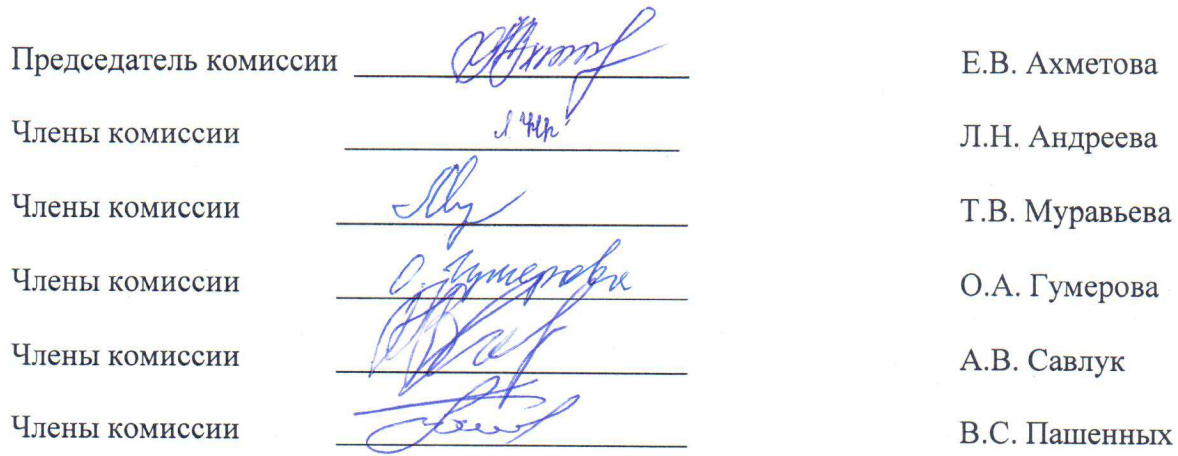 Председатель комиссии Е.В. Ахметова
Члены комиссии Л.Н. Андреева
Члены комиссии Т.В. Муравьева
Члены комиссии О. Гумерова О.А. Гумерова
Члены комиссии А.В. Савлук
Члены комиссии В.С. Пашенных